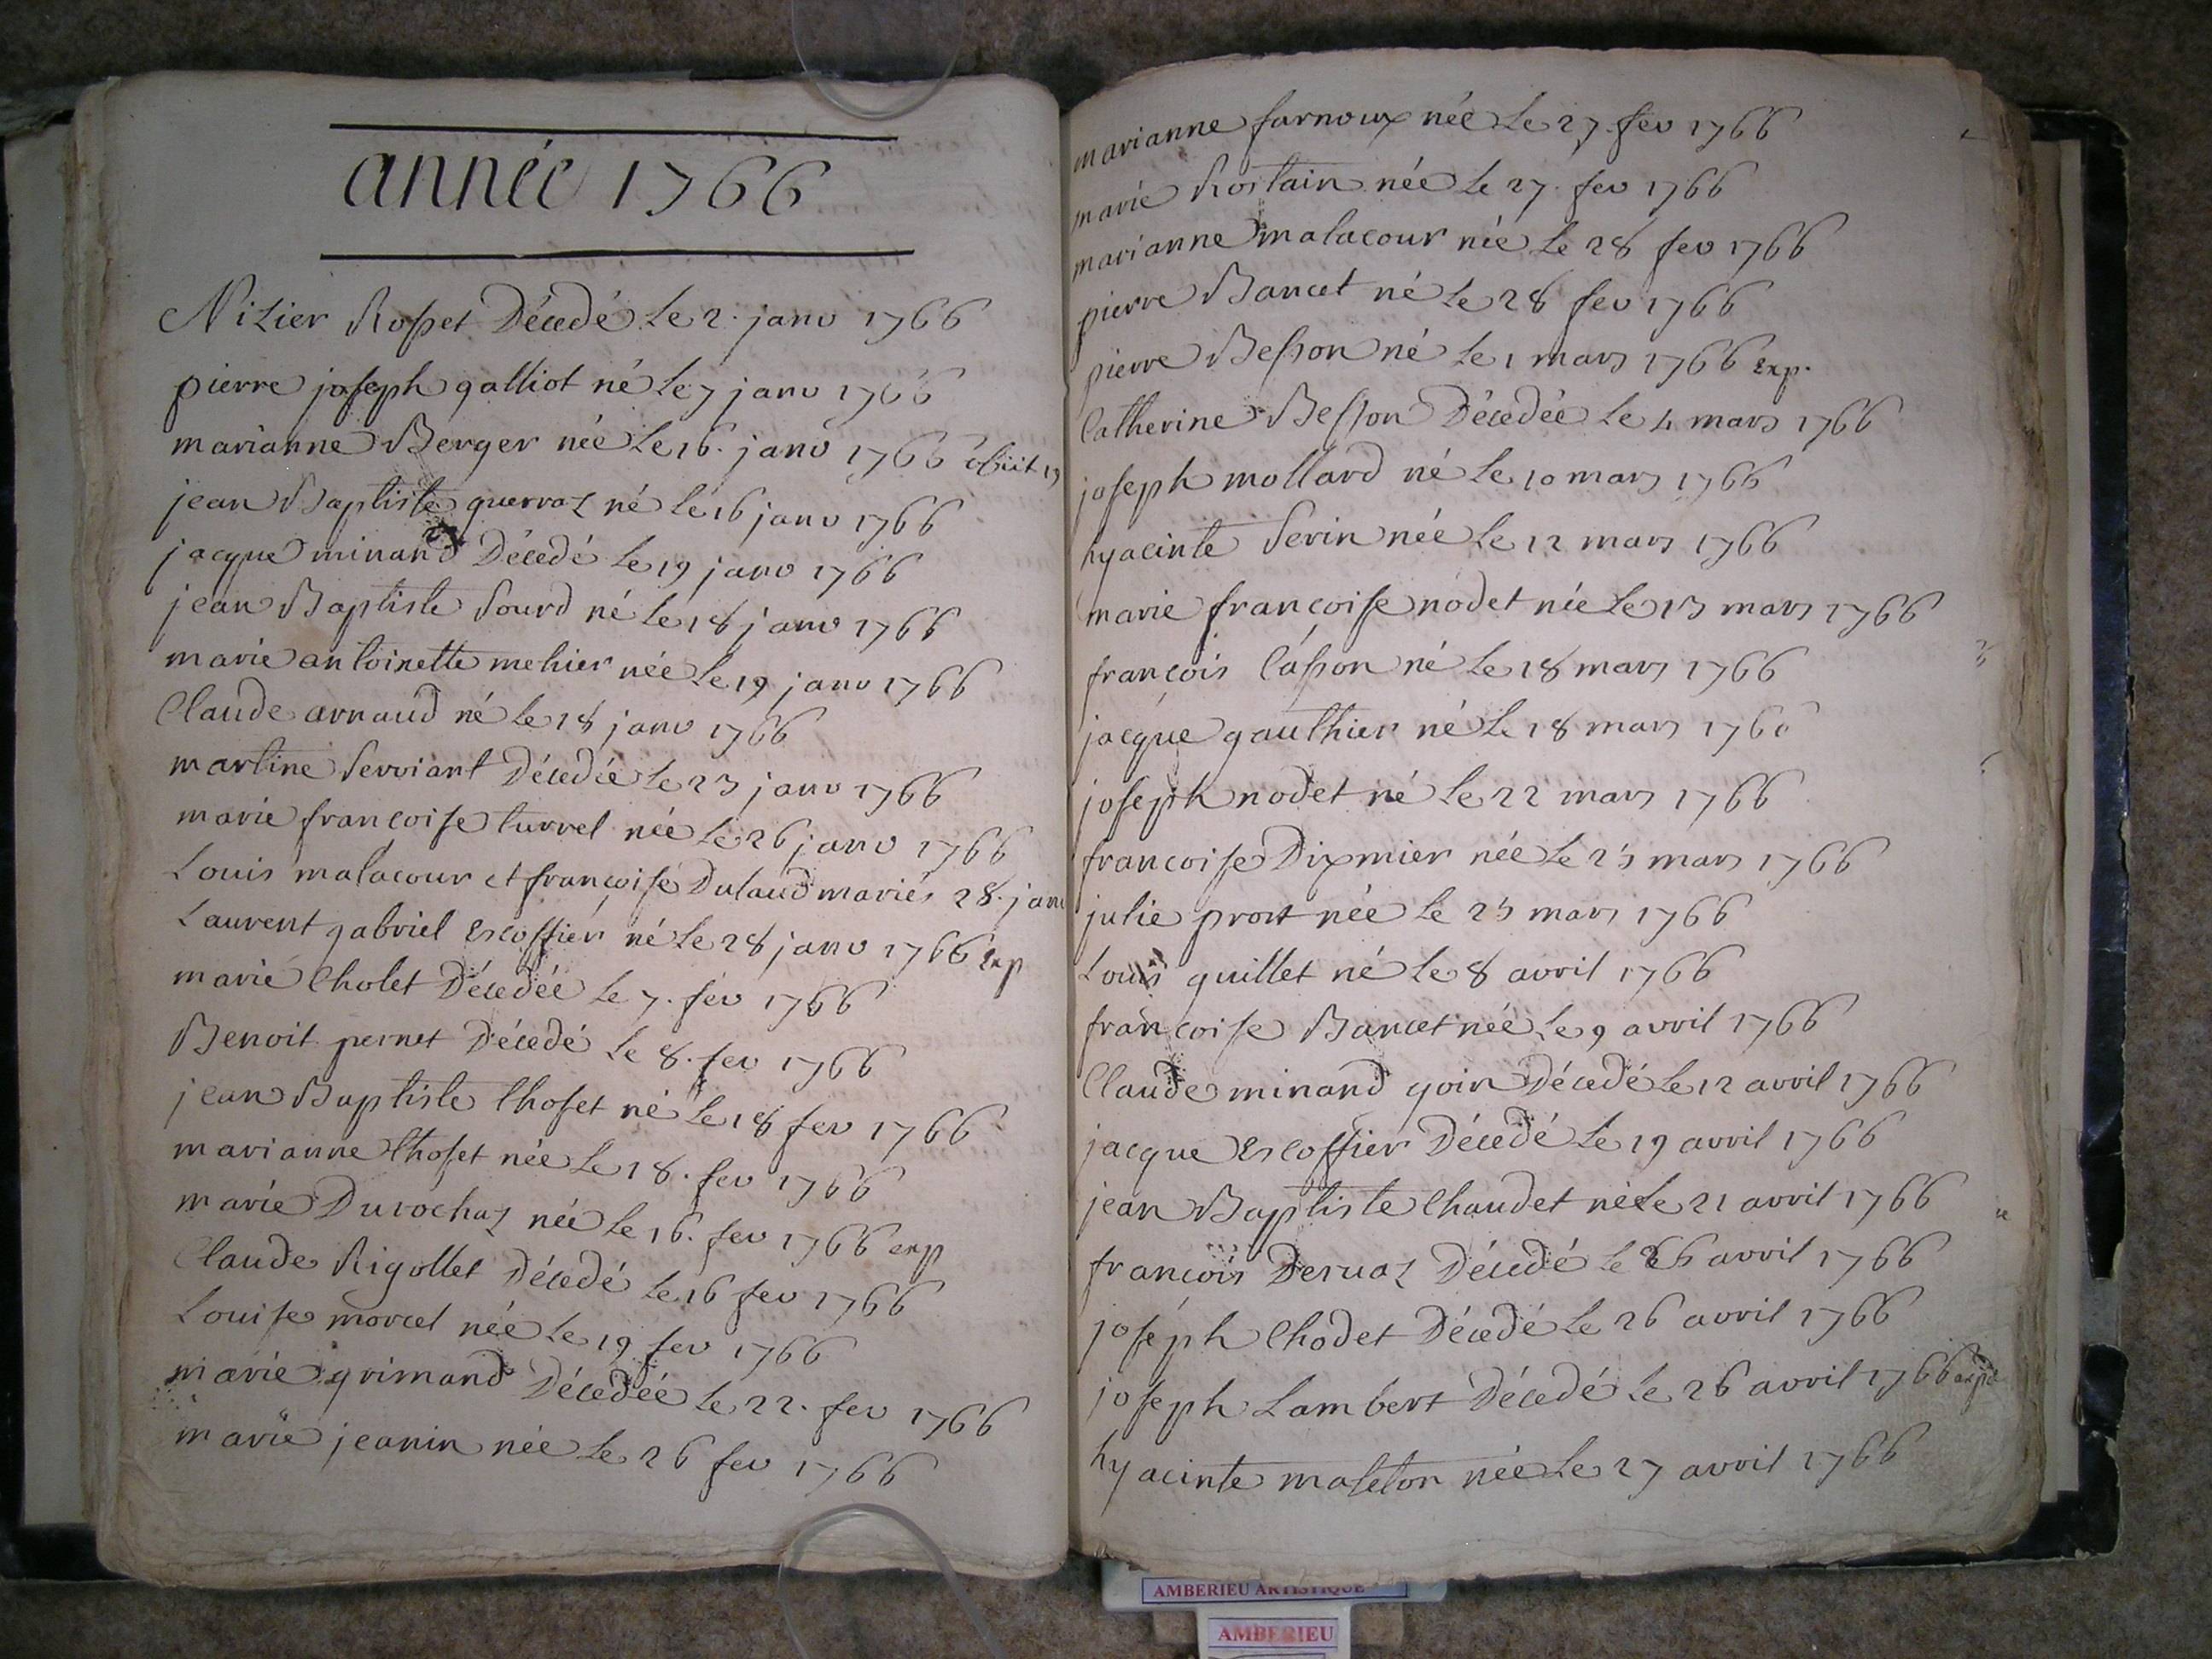 année 1766
Nizier Rosset Décedé Le 2. janv 1766
pierre joseph galliot né Le 7 janv 1766
marianne Berger née Le 16. janv 1766 obiit
jean Baptiste querraz né Le 16 janv 1766
jacque minand Décedé Le 19 janv 1766
jean Baptiste Sourd né Le 18 janv 1766
marie antoinette mehier née Le 19 janv 1766
Claude arnaud né Le 18 janv 1766
martine Serviant Décedée Le 23 janv 1766
marie francoise turrel née Le 26 janv 1766
Louis malacour et françoise Dulaud mariés 28. janv
Laurent gabriel Escoffier né Le 28 janv 1766 Exp
marie Cholet Décedée Le 7. fev 1766
Benoit pernet Décedé Le 8. fev 1766
jean Baptiste Choset né Le 18 fev 1766
marianne Choset née Le 18. fev 1766
marie Durochaz née Le 16. fev 1766 exp
Claude Rigollet Décedé Le 16 fev 1766
Louise morcel née Le 19 fev 1766
marie grimand Décedée Le 22. fev 1766
marie jeanin née Le 26 fev 1766
marianne farnoux née Le 27. fev 1766
marie Rostain née Le 27. fev 1766
marianne malacour née Le 28 fev 1766
pierre Bancet né Le 28 fev 1766
pierre Besson né Le 1 mars 1766 Exp.
Catherine Besson Décedée Le 4 mars 1766
joseph mollard né Le 10 mars 1766
hyacinte Serin née Le 12 mars 1766
marie françoise nodet née Le 13 mars 1766
françois Casson né Le 18 mars 1766
jacque gauthier né Le 18 mars 1766
joseph nodet né Le 22 mars 1766
francoise Dixmier née Le 23 mars 1766
julie prost née Le 23 mars 1766
Louis guillet né Le 8 avril 1766
francoise Bancet née Le 9 avril 1766
Claude minand goin Décedé Le 12 avril 1766
jacque Escoffier Décedé Le 19 avril 1766
jean Baptiste Chaudet né Le 21 avril 1766
françois Dervaz Décedé Le 26 avril 1766
joseph Chodet Décedé Le 26 avril 1766
joseph Lambert Décedé Le 26 avril 1766 expé
hyacinte maseton née Le 27 avril 1766
AMBERIEU ARTISTIQUE
AMBERIEU